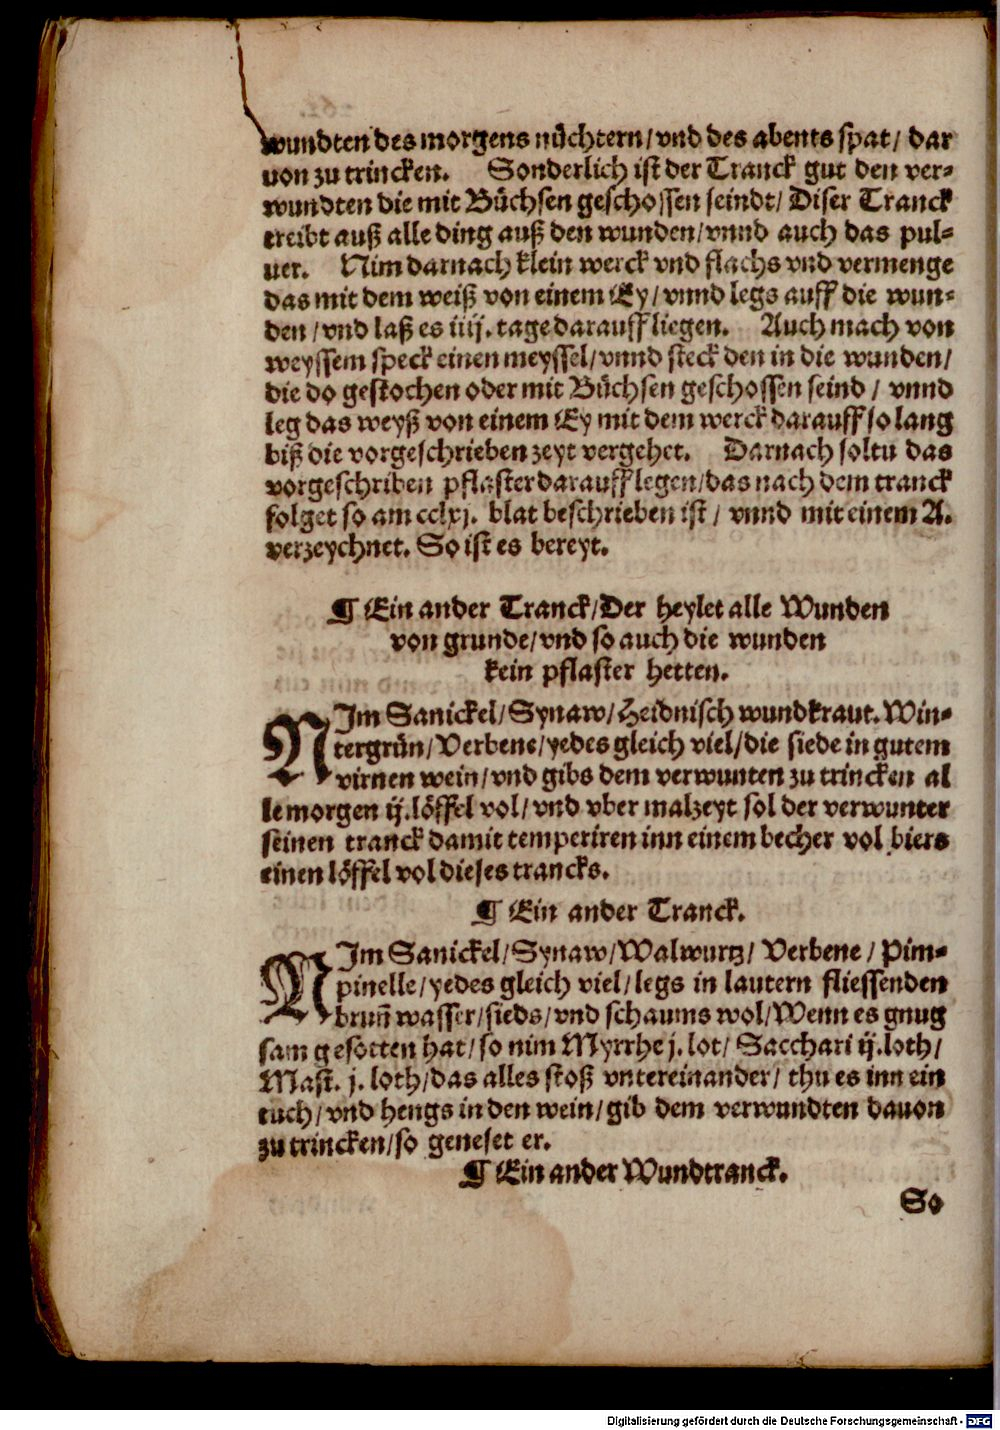 wundten des morgens nüchtern/vnd des abents spat/ dar
uon zu trincken. Sonderlich ist der Tranck gut den ver-
wundten die mit Büchsen geschossen seindt/ Diser Tranck
treibt auß alle ding auß den wunden/vnnd auch das pul-
uer. Nim darnach klein werck vnd flachs vnd vermenge
das mit dem weiß von einem Ey/ vnnd legs auff die wun-
den/vnd laß es iiij. tage darauff liegen. Auch mach von
weyssem speck einen meyssel/vnnd steck den in die wunden/
die do gestochen oder mit Büchsen geschossen seind/ vnnd
leg das weyß von einem Ey mit dem werck darauff so lang
biß die vorgeschrieben zeyt vergehet. Darnach soltu das
vorgeschriben pflaster darauff legen/das nach dem tranck
folget so am cclxj. blat beschrieben ist/ vnnd mit einem A.
verzeychnet. So ist es bereyt.
¶ Ein ander Tranck/Der heylet alle Wunden
von grunde/vnd so auch die wunden
kein pflaster hetten.
NIm Sanickel/Synaw/Heidnisch wundkraut. Win-
tergrün/Verbene/yedes gleich viel/die siede in gutem
virnen wein/vnd gibs dem verwunten zu trincken al
le morgen ij.löffel vol/vnd vber malzeyt sol der verwunter
seinen tranck damit temperiren inn einem becher vol biers
einen löffel vol dieses trancks.
¶ Ein ander Tranck.
NIm Sanickel/Synaw/Walwurtz/ Verbene/ Pim-
pinelle/yedes gleich viel/legs in lautern fliessenden
brun̄ wasser/sieds/vnd schaums wol/Wenn es gnug
sam gesotten hat/so nim Myrrhe j. lot/ Sacchari ij.loth/
Mast. j. loth/das alles stoß vntereinander/ thu es inn ein
tuch/vnd hengs in den wein/gib dem verwundten dauon
zu trincken/so geneset er.
¶ Ein ander Wundtranck.
So
Digitalisierung gefördert durch die Deutsche Forschungsgemeinschaft - DFG